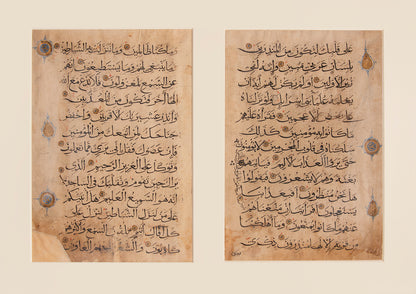 على قلبك لتكون من المنذرين
بلسان عربي مبين وانه لفي
زبر الاولين اولم يكن لهم اية ان
يعلمه علماء بني اسرائيل ولو نزلناه
على بعض الاعجمين فقراه عليهم
ما كانوا به مؤمنين كذلك
سلكناه في قلوب المجرمين لا يؤمنون به
حتى يروا العذاب الاليم فياتيهم
بغتة وهم لا يشعرون فيقولوا
هل نحن منظرون افبعذابنا
يستعجلون افرايت ان متعناهم
وما اهلكنا
من قرية الا لها منذرون ذكرى
وما كنا ظالمين وما تنزلت به الشياطين
وما ينبغي لهم وما يستطيعون انهم
عن السمع لمعزولون فلا تدع مع الله
الها اخر فتكون من المعذبين
وانذر عشيرتك الاقربين واخفض
جناحك لمن اتبعك من المؤمنين
فان عصوك فقل اني بريء مما تعملون
وتوكل على العزيز الرحيم الذي
يراك حين تقوم وتقلبك في الساجدين
انه هو السميع العليم هل انبئكم
على من تنزل الشياطين تنزل على
كل افاك اثيم يلقون السمع واكثرهم
كاذبون والشعراء يتبعهم الغاوون